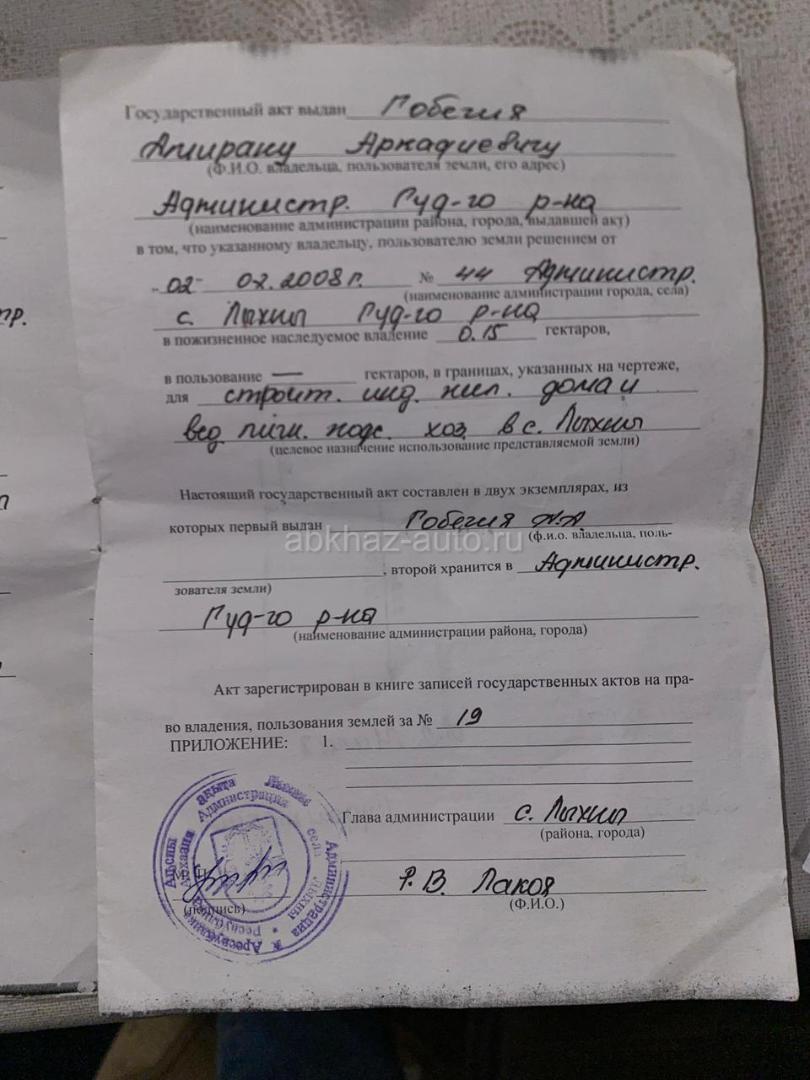 Государственный акт выдан Гобегия
Амирану Аркадиевичу
(Ф.И.О. владельца, пользователя земли, его адрес)
Администр. Гуд-го р-на
(наименование администрации района, города, выдавшей акт)
в том, что указанному владельцу, пользователю земли решением от
"02" 02.2008 г. № 44 Администр.
(наименование администрации города, села)
с. Лыхны Гуд-го р-на
в пожизненное наследуемое владение 0.15 гектаров,
в пользование — гектаров, в границах, указанных на чертеже,
для строит. инд. жил. дома и
вед. личн. подс. хоз. в с. Лыхны
(целевое назначение использование представляемой земли)
Настоящий государственный акт составлен в двух экземплярах, из
которых первый выдан Гобегия А.А
abkhaz-auto.ru
(ф.и.о. владельца, поль-
, второй хранится в Администр.
зователя земли)
Гуд-го р-на
(наименование администрации района, города)
Акт зарегистрирован в книге записей государственных актов на пра-
во владения, пользования землей за № 19
ПРИЛОЖЕНИЕ: 1.
Глава администрации с. Лыхны
(района, города)
(подпись)
Р.В. Лакоя
(Ф.И.О.)
Аԥсны ақыта Лыхны
Администрация села Лыхны
Республика Абхазия
тр.